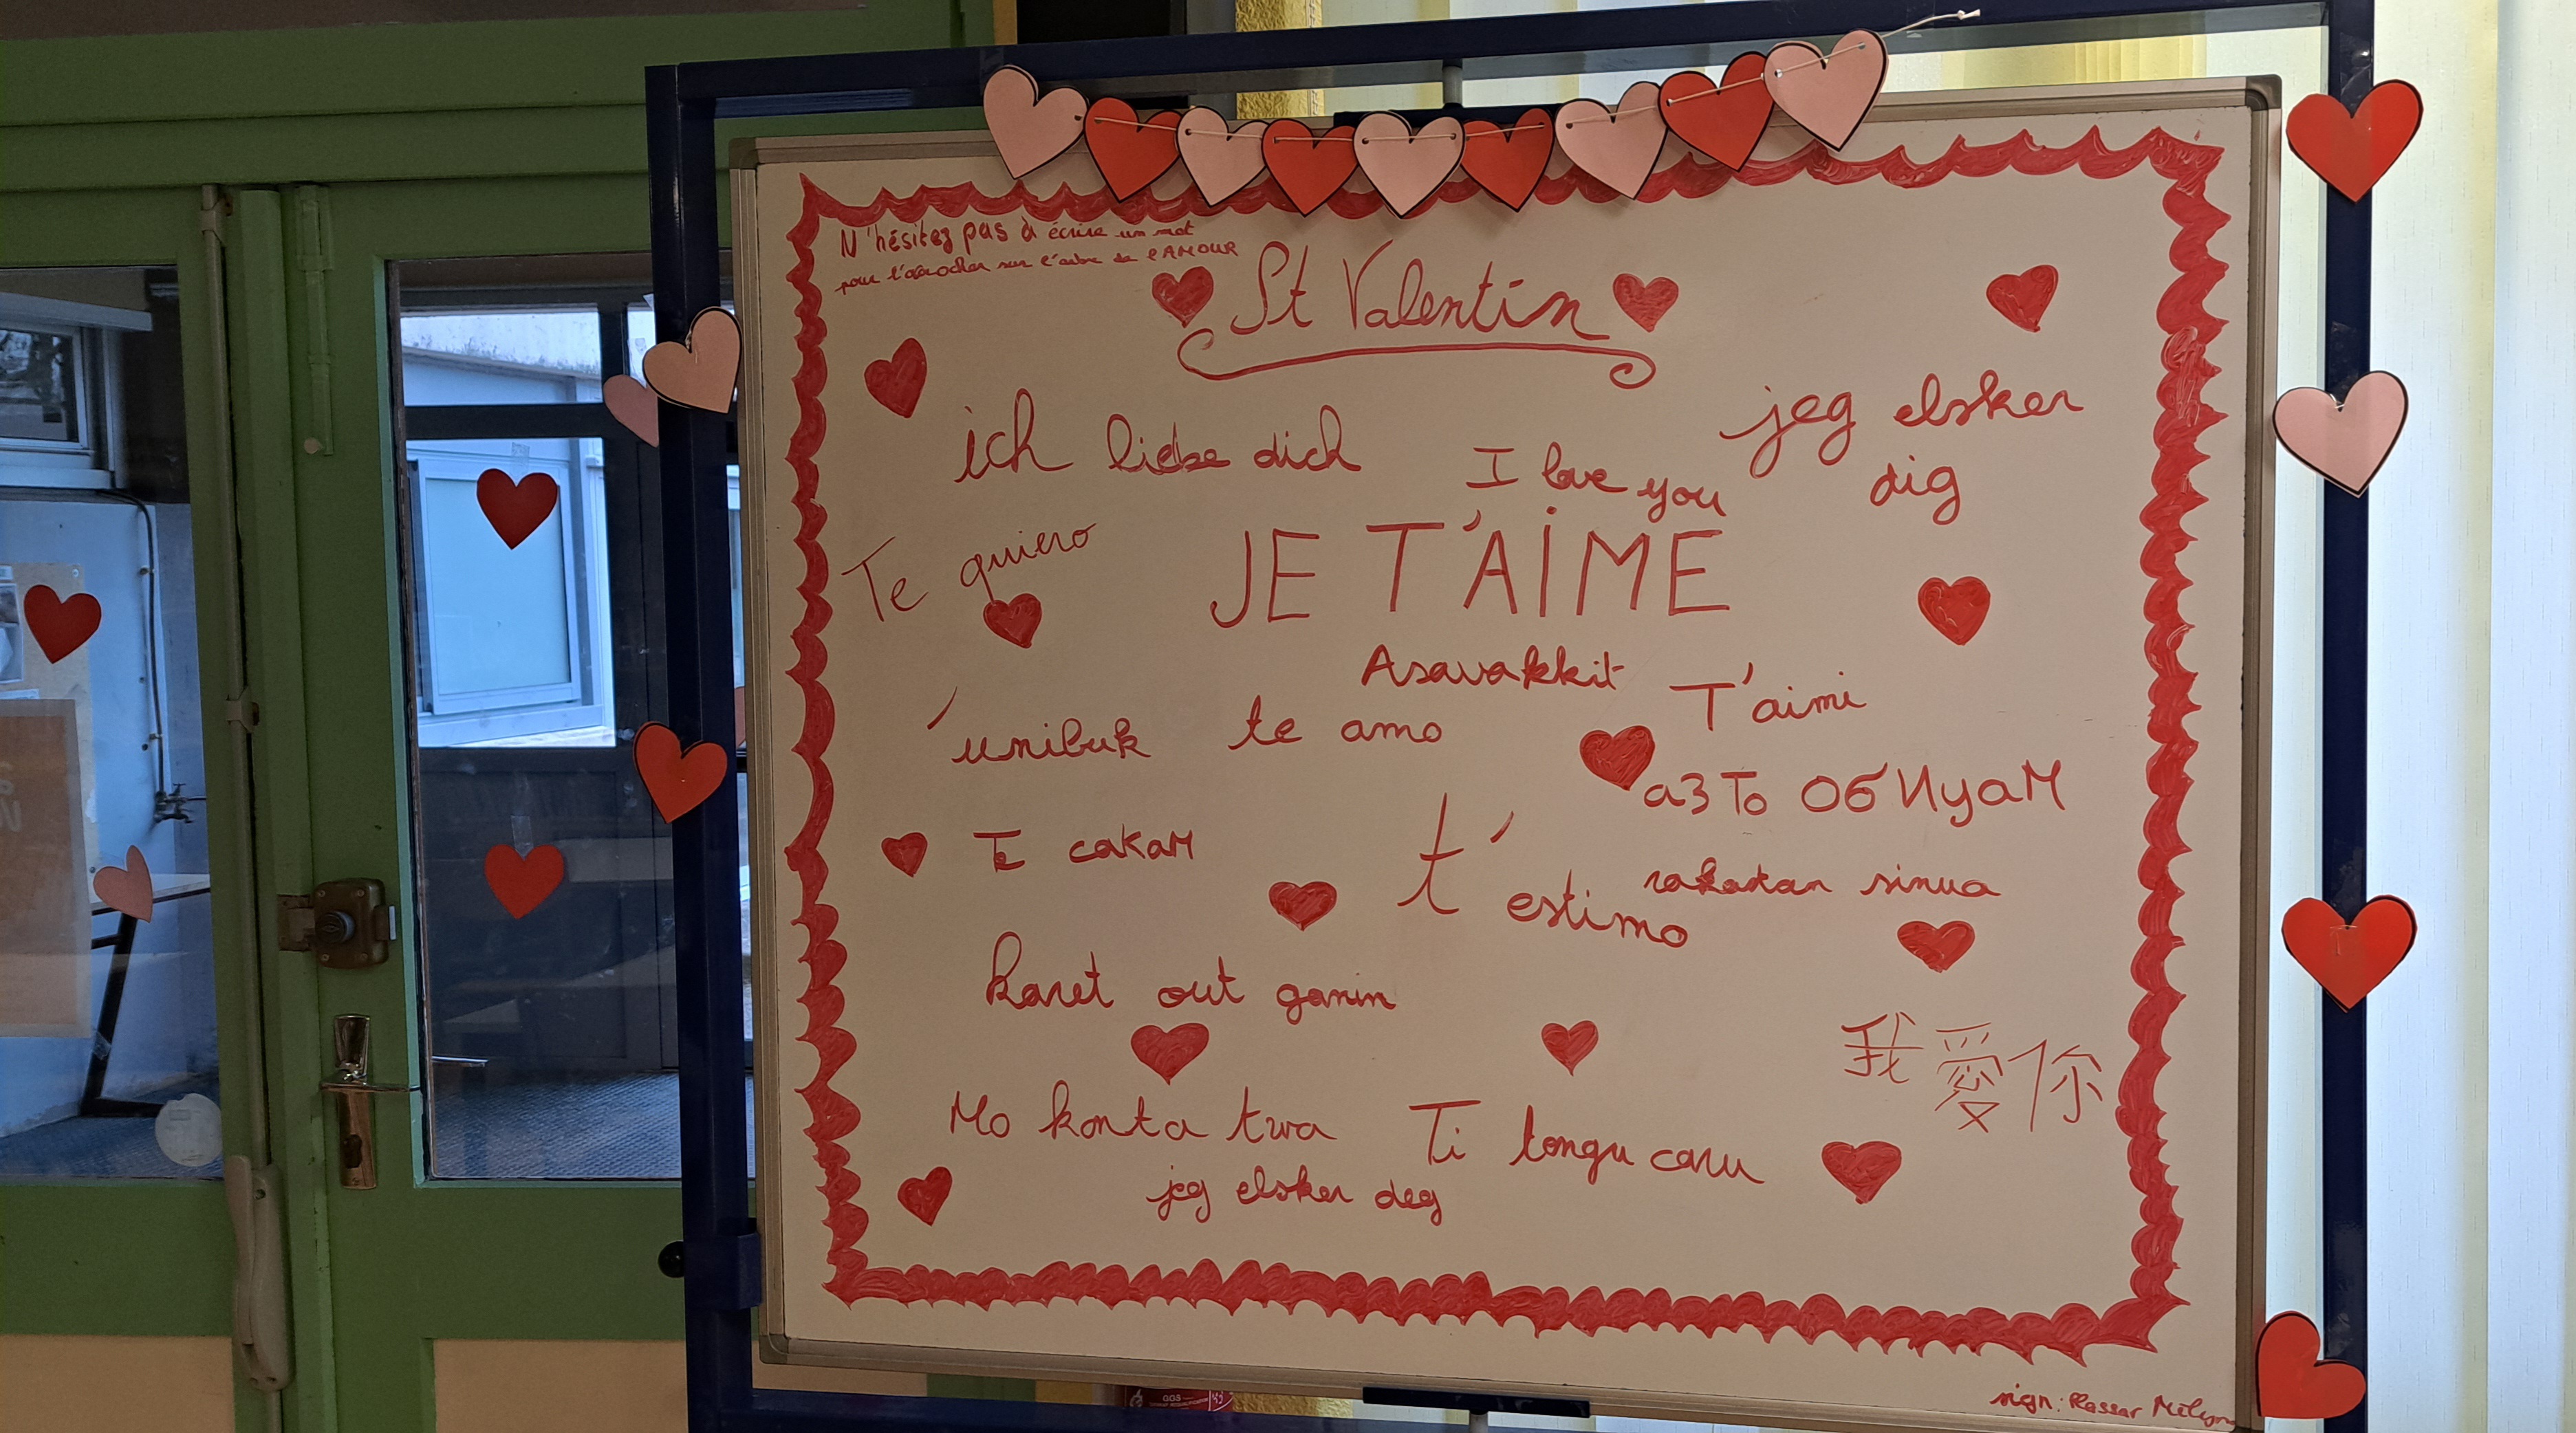 N'hésitez pas à écrire un mot
pour l'accrocher sur l'arbre de l'AMOUR
St Valentin
ich liebe dich
I love you
jeg elsker
dig
Te quiero
JE T'AIME
Asavakkit
T'aimi
'unibuk
te amo
аз То ОбИуаМ
Те сакам
t'estimo
rakastan sinua
karet out ganin
我愛你
Mo konta twa
Ti tengu caru
jeg elsker deg
sign: Kassar
GGS